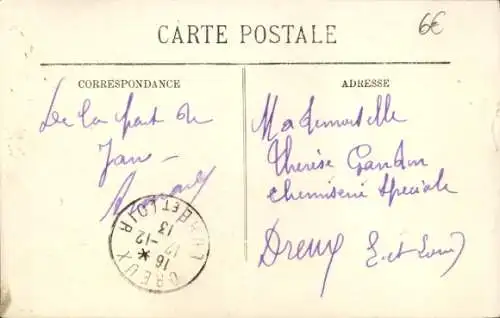 CARTE POSTALE
6€
CORRESPONDANCE
De la part de
Jane
ADRESSE
Mademoiselle
Thérèse Gandon
Chemiserie Spéciale
Dreux E. et Loir)
DREUX
EURE-ET-LOIR
16 *
17-12
13